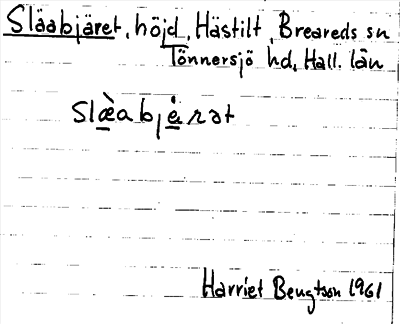 Slääbjäret, höjd, Hästilt, Breareds sn
Tönnersjö hd, Hall. län
slæ̀abjæ̇rət
Harriet Bengtson 1961